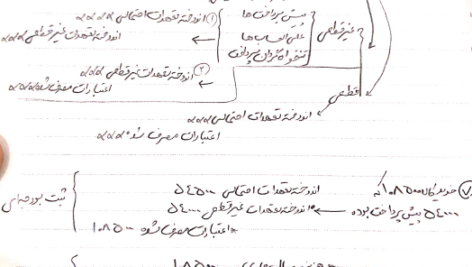 غیرقطعی
پیش پرداخت ها
علی الحساب ها
تنخواه گردان پرداخت
① اندوخته تعهدات احتمالی ××××
اندوخته تعهدات غیرقطعی ××××
② اندوخته تعهدات غیرقطعی ×××
اعتبارات مصرف شده ××××
قطعی
اندوخته تعهدات احتمالی ×××
اعتبارات مصرف شده ×××
⑦ خرید کالا ۱۰۸۵۰۰ که
۵۴۰۰۰ پیش پرداخت بوده
اندوخته تعهدات احتمالی ۵۴۵۰۰
اندوخته تعهدات غیرقطعی ۵۴۰۰۰
اعتبارات مصرف شده ۱۰۸۵۰۰
ثبت بودجه‌ای